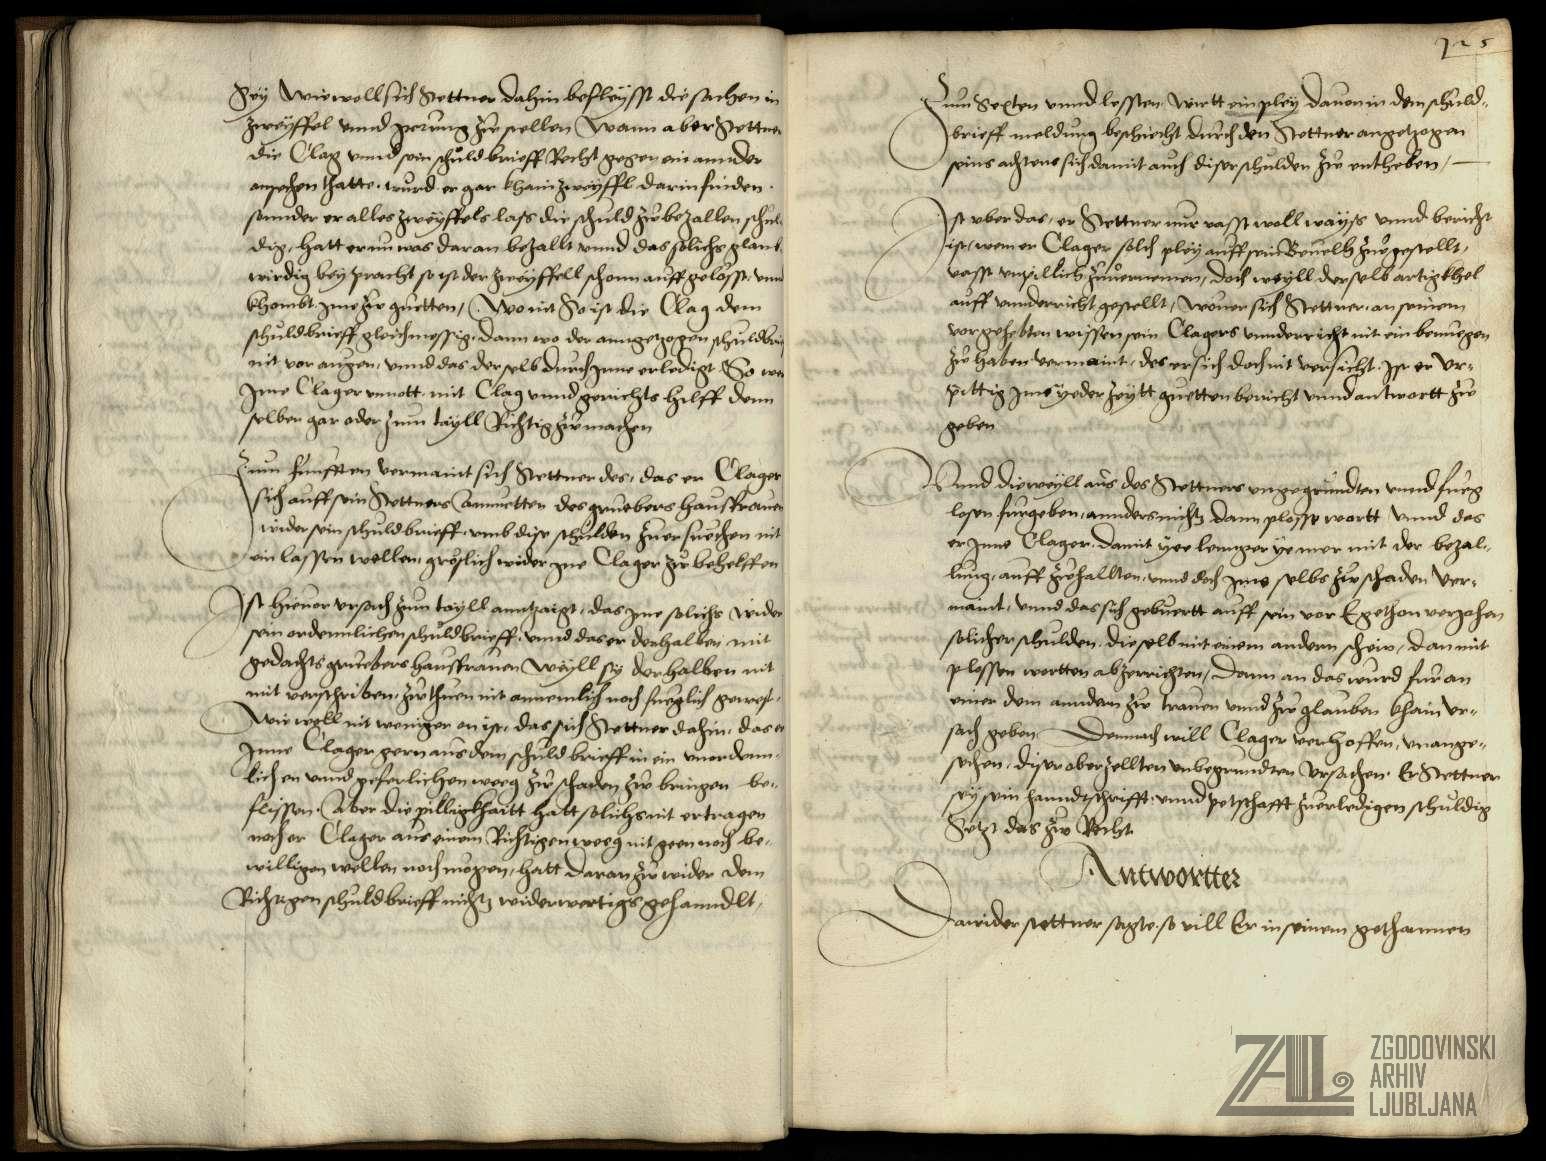 Sey Wiewoll sich Stettner dahin befleysst die sachen in
zweyffel vnnd zu stellen Wann aber Stettner
die Clag vnnd sein schuldbrieff Recht gegen ein annder
ansechen thatte, wurd er gar khain zweyffl darin finden
sonnder er alles zweyffels lass die schuld zu bezallen schul
dig, hatt er nu was daran bezallt vnnd das solichs glaub
wirdig bey pracht so ist der zweyffell schonn auffgelosst, vnnd
khombt Ime zu guetten, Womit So ist die Clag dem
schuldbrieff gleichmessig, dann wo der anngezogen schuldbrieff
nit vor augen, vnnd das derselb durch Inne erledigt So wer
Ime Clager vnnott mit Clag vnnd gerichts hilff denn
selben gar oder zum tayll Richtig zu machen
Zum funfften vermaint sich Stettner des, das er Clager
sich auff sein Stettners anmuetten des gruebers hausfrauen
wider sein schuldbrieff vmb dise schulden zuersuechen nit
ein lassen wellen, groslich wider Ine Clager zu behelffen
Ist hieuor vrsach zum tayll anntzaigt, das Ime solichs wider
sein ordennlichen schuldbrieff, vnnd das er derhalben mit
gedachts gruebers hausfrauen Weyll sy derhalben nit
mit verschriben, zu thuen nit annemlich noch fueglich gewest,
Wiewoll nit weniger an ist, das sich Stettner dahin, das er
Inne Clager gern aus dem schuldbrieff in ein vnordenn
lichen vnnd geferlichen weeg zu schaden zu bringen be-
flissen. Aber die pilligkhaitt hatt solichs nit ertragen
noch er Clager aus einem Richtigen weeg nit geen noch be-
willigen wellen noch mugen, hatt daran zu wider dem
Richtigen schuldbrieff nichtz widerwertigs gehanndlt,
125
Zum Sexten vnnd lessten, Wiett ein pley dauon in dem schuld-
brieff meldung beschiecht durch den Stettner angetzogen
seins achtens sich damit auch diser schulden zu entheben,
Ist vber das, er Stettner nur vasst woll wayss vnnd bericht
ist, wem er Clager solch pley auff sein Beuelh zuegestellt,
vasst vnpillich zuuernemen, doch weyll derselb artigkhel
auff vnnderricht gestellt, Wouer sich Stettner an seinem
vorgehebten wissen sein Clagers vnnderricht nit ein benuegen
zu haben vermaint, des er sich doch nit versicht Ist er vr-
pittig Ime yeder zeytt guetten bericht vnnd antwortt zu
geben
Vnnd dieweyll aus des Stettners vngegrundten vnnd fueg
losen furgeben, annders nichtz dann plosse wortt vnnd das
er Inne Clager, damit yee lennger ye mer mit der bezal-
lung, auff zuhallten, vnnd doch Ime selbs zu schaden ver-
maint, vnnd das sich gebuertt auff sein vor E gethon verjahen
solicher schulden, dieselb mit einem andern schein, dan mit
plossen wortten abzerrichten, Dann an das wurd furan
einer dem anndern zu trauen vnnd zu glauben khain vr-
sach geben, Demnach will Clager verhoffen, vnange-
sechen, diser oberzellten vnbegrundten vrsachen Er Stettner
sey sein hanndtschrifft, vnnd petschafft zuerledigen schuldig
Setzt das zu Recht
Antwortter
Dawider Stettner sagte, so vill Er in seinem gethannen
ZAL ZGODOVINSKI
ARHIV
LJUBLJANA